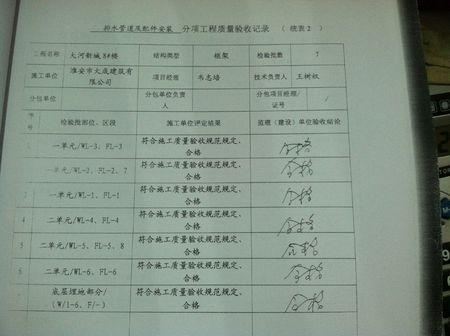 排水管道及配件安装 分项工程质量验收记录 (续表2)
工程名称 大河新城8#楼 结构类型 框架 检验批数 7
施工单位 淮安市大成建筑有限公司 项目经理 韦志培 技术负责人 王树权
分包单位 分包单位负责人 分包项目经理/证号
序号 检验批部位、区段 施工单位评定结果 监理(建设)单位验收结论
一单元/WL-3、FL-3 符合施工质量验收规范规定、合格 合格
一单元/WL-2、FL-2、7 符合施工质量验收规范规定、合格 合格
一单元/WL-1、FL-1 符合施工质量验收规范规定、合格 合格
4 二单元/WL-4、FL-4 符合施工质量验收规范规定、合格 合格
5 二单元/WL-5、FL-5、8 符合施工质量验收规范规定、合格 合格
6 二单元/WL-6、FL-6 符合施工质量验收规范规定、合格 合格
7 底层埋地部分/(W/1-6、F/-) 符合施工质量验收规范规定、合格 合格